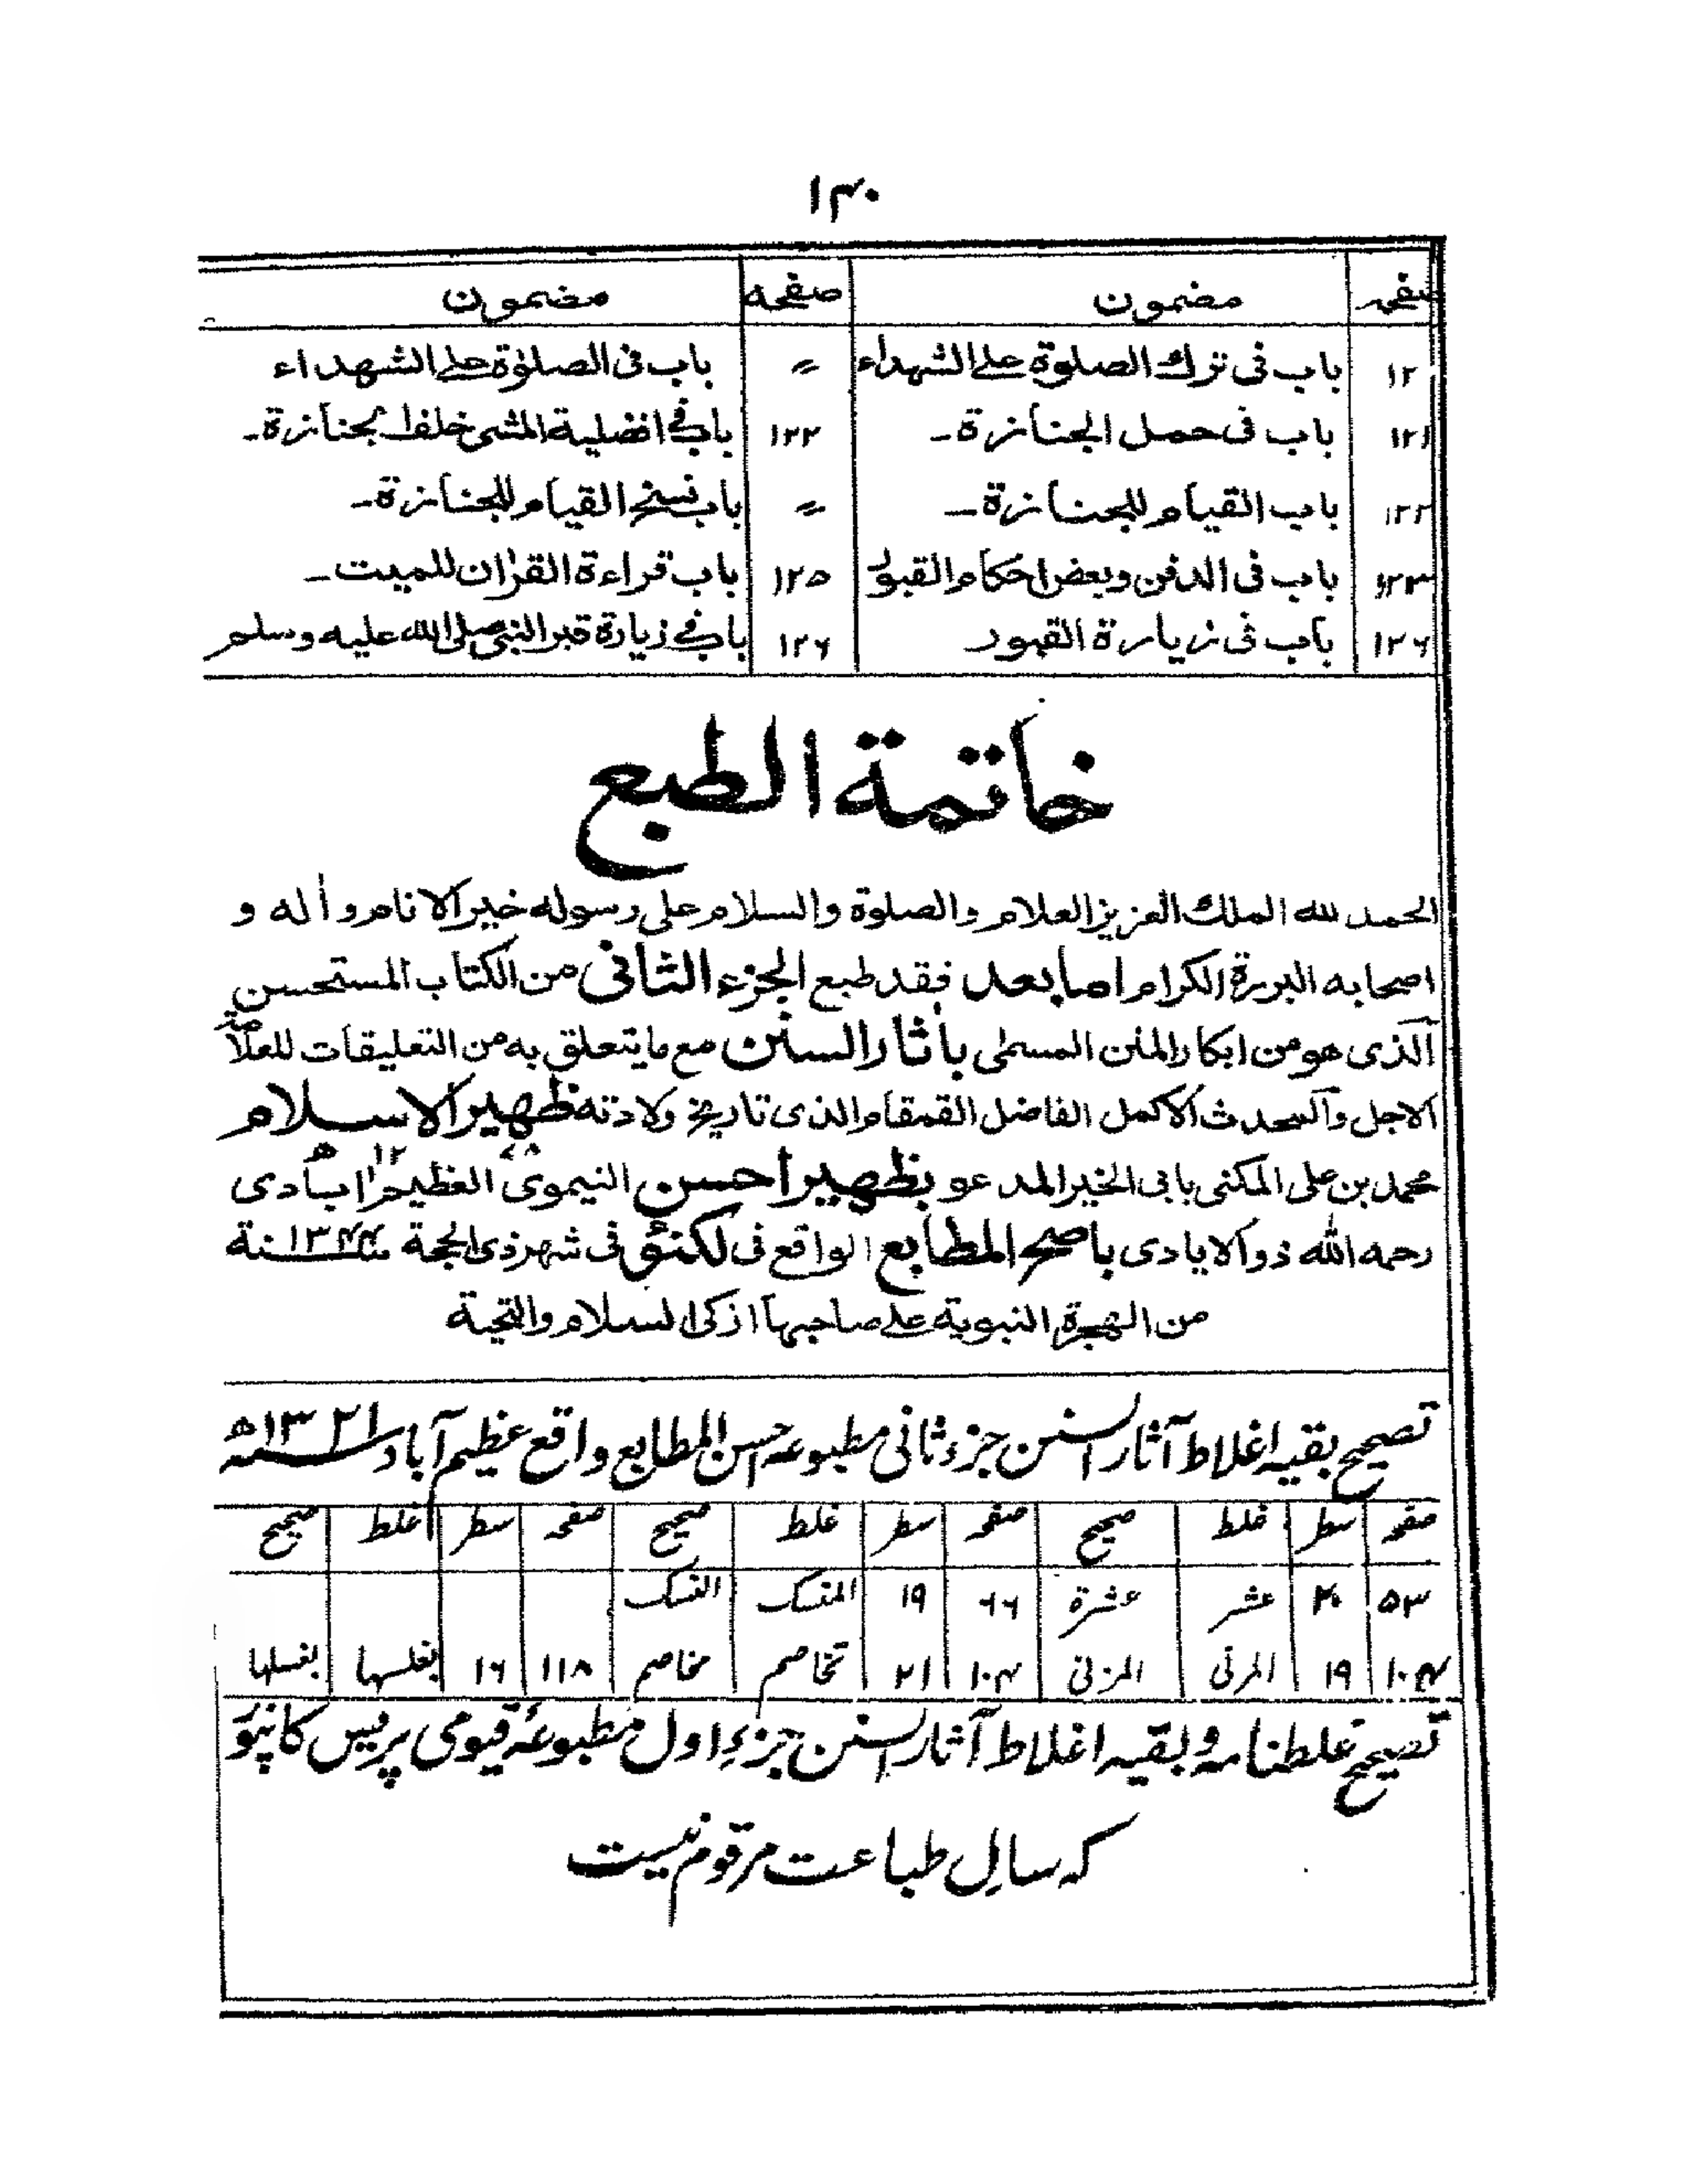 ۱۳۰
صفحہ مضمون صفحہ مضمون
۱۲ باب فی ترک الصلوة علی الشهداء 〃 باب فی الصلوٰة علی الشهداء
۱۲۱ باب فی حمل الجنازة۔ ۱۲۲ باب فی افضلیة المشی خلف الجنازة۔
۱۲۲ باب القیام للجنازة۔ 〃 باب نسخ القیام للجنازة۔
۱۲۳ باب فی الدفن وبعض احکام القبور ۱۲۵ باب قراءة القرٰان للمیت۔
۱۲۶ باب فی زیارة القبور ۱۲۶ باب فی زیارة قبر النبی صلی الله علیه وسلم
خاتمة الطبع
الحمد لله الملك العزیز العلام والصلوة والسلام علی رسوله خیر الانام واٰله و
اصحابه البررة الکرام اما بعد فقد طبع الجزء الثانی من الکتاب المستحسن
الذی هو من ابکار المنن المسمٰی باٰثار السنن مع ما یتعلق به من التعلیقات للعلامة
الاجل والمحدث الاکمل الفاضل القمقام الذی تاریخ ولادته ظهیر الاسلام
۱۲ ۷۸ ھ
محمد بن علی المکنی بابی الخیر المدعو بظهیر احسن النیموی العظیم اٰبادی
رحمه الله ذو الایادی باصح المطابع الواقع فی لکنئو فی شهر ذی الحجة سنة ۱۳۴۴
من الهجرة النبویة علی صاحبها ازکی السلام والتحیة
تصحیح بقیہ اغلاط آثار السنن جزء ثانی مطبوعہ احسن المطابع واقع عظیم آباد سنہ ۱۳۲۱ھ
صفحہ سطر غلط صحیح صفحہ سطر غلط صحیح صفحہ سطر غلط صحیح
۵۳ ۲۰ عشر عشرة ۶۶ ۱۹ المنسک النسک
۱۰۴ ۱۹ المرنی المزنی ۱۰۴ ۲۱ تخاصم مخاصم ۱۱۸ ۱۶ بغلسها بغسلها
تصحیح غلطنامہ و بقیہ اغلاط آثار السنن جزء اول مطبوعۂ قیومی پریس کانپور
کہ سالِ طباعت مرقوم نیست